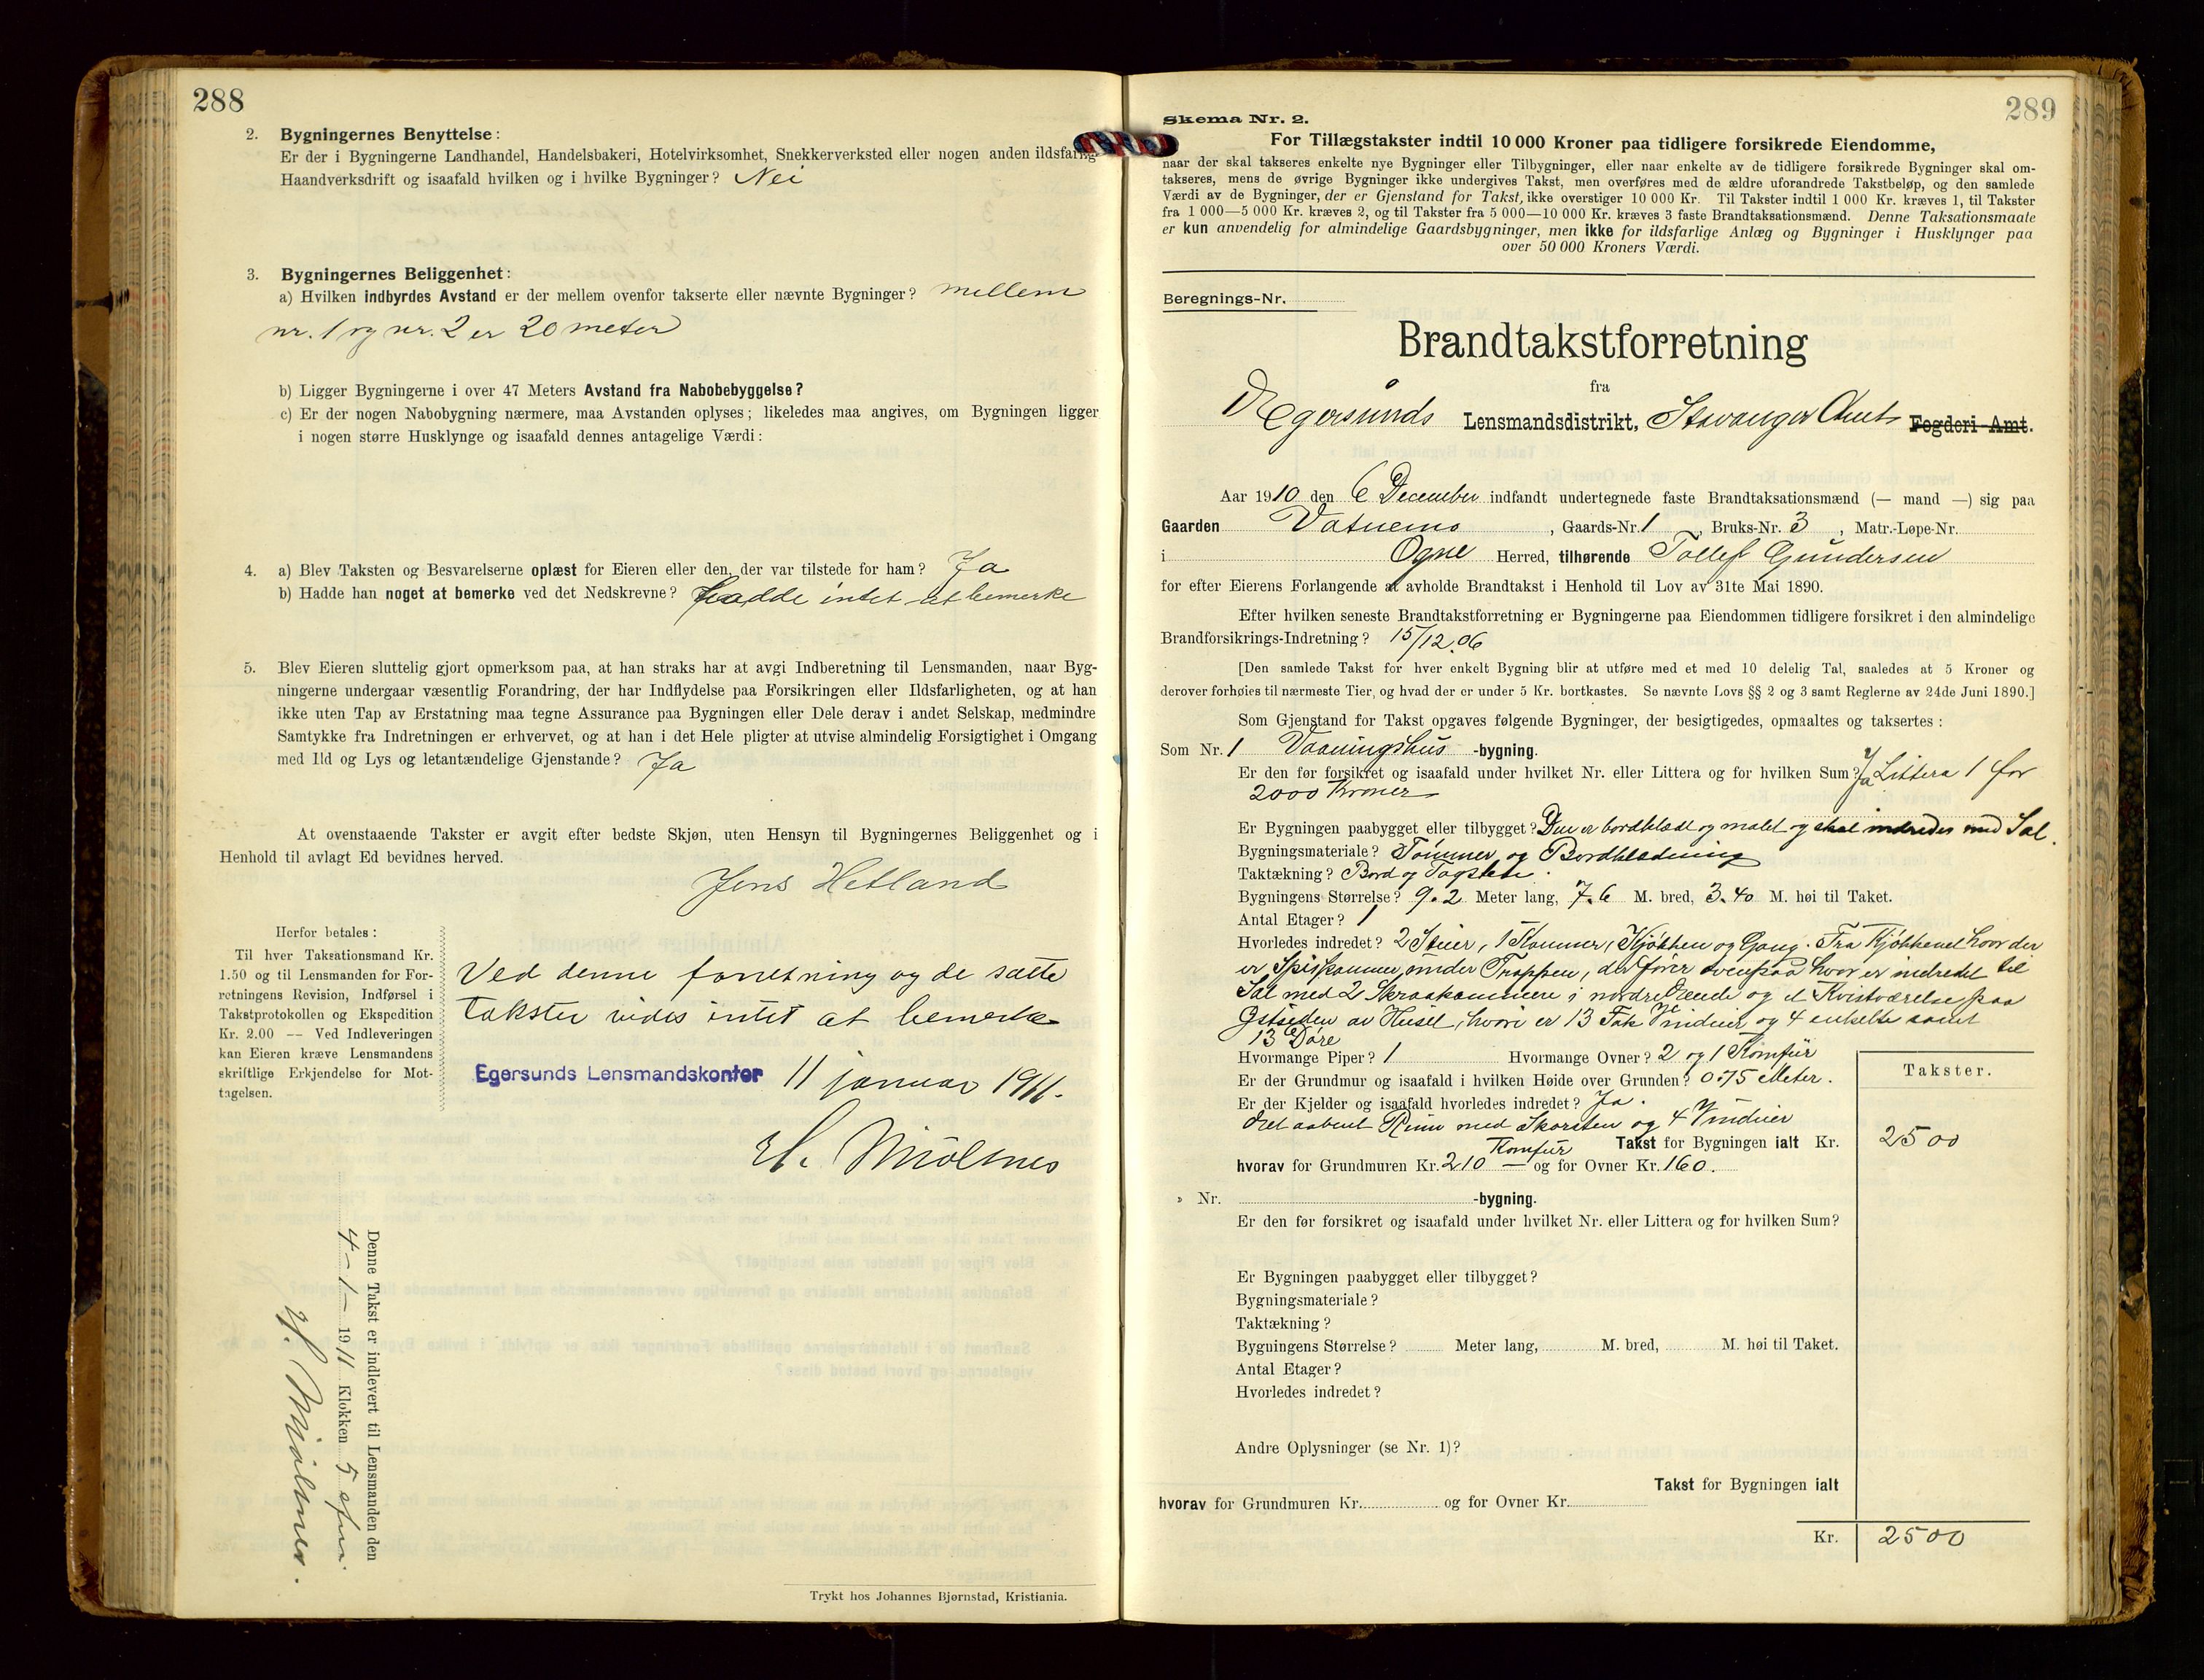 288
2. Bygningernes Benyttelse:
Er der i Bygningerne Landhandel, Handelsbakeri, Hotelvirksomhet, Snekkerverksted eller nogen anden ildsfarlig
Haandverksdrift og isaafald hvilken og i hvilke Bygninger? Nei
3. Bygningernes Beliggenhet:
a) Hvilken indbyrdes Avstand er der mellem ovenfor takserte eller nævnte Bygninger? mellem
nr. 1 og nr. 2 er 20 meter
b) Ligger Bygningerne i over 47 Meters Avstand fra Nabobebyggelse?
c) Er der nogen Nabobygning nærmere, maa Avstanden oplyses; likeledes maa angives, om Bygningen ligger
i nogen større Husklynge og isaafald dennes antagelige Værdi:
4. a) Blev Taksten og Besvarelserne oplæst for Eieren eller den, der var tilstede for ham? Ja
b) Hadde han noget at bemerke ved det Nedskrevne? Hadde intet at bemerke
5. Blev Eieren sluttelig gjort opmerksom paa, at han straks har at avgi Indberetning til Lensmanden, naar Byg-
ningerne undergaar væsentlig Forandring, der har Indflydelse paa Forsikringen eller Ildsfarligheten, og at han
ikke uten Tap av Erstatning maa tegne Assurance paa Bygningen eller Dele derav i andet Selskap, medmindre
Samtykke fra Indretningen er erhvervet, og at han i det Hele pligter at utvise almindelig Forsigtighet i Omgang
med Ild og Lys og letantændelige Gjenstande? Ja
At ovenstaaende Takster er avgit efter bedste Skjøn, uten Hensyn til Bygningernes Beliggenhet og i
Henhold til avlagt Ed bevidnes herved.
Jens Hetland
Herfor betales:
Til hver Taksationsmand Kr.
1.50 og til Lensmanden for For-
retningens Revision, Indførsel i
Takstprotokollen og Ekspedition
Kr. 2.00 — Ved Indleveringen
kan Eieren kræve Lensmandens
skriftlige Erkjendelse for Mot-
tagelsen.
Ved denne forretning og de satte
takster vides intet at bemerke
Egersunds Lensmandskontor 11 januar 1911.
H. Mjølsnes
Denne Takst er indlevert til Lensmanden den
4 - 1 - 1911 Klokken 5 efm.
H. Mjølsnes.
Trykt hos Johannes Bjørnstad, Kristiania.
289
Skema Nr. 2.
For Tillægstakster indtil 10 000 Kroner paa tidligere forsikrede Eiendomme,
naar der skal takseres enkelte nye Bygninger eller Tilbygninger, eller naar enkelte av de tidligere forsikrede Bygninger skal om-
takseres, mens de øvrige Bygninger ikke undergives Takst, men overføres med de ældre uforandrede Takstbeløp, og den samlede
Værdi av de Bygninger, der er Gjenstand for Takst, ikke overstiger 10 000 Kr. Til Takster indtil 1 000 Kr. kræves 1, til Takster
fra 1 000—5 000 Kr. kræves 2, og til Takster fra 5 000—10 000 Kr. kræves 3 faste Brandtaksationsmænd. Denne Taksationsmaate
er kun anvendelig for almindelige Gaardsbygninger, men ikke for ildsfarlige Anlæg og Bygninger i Husklynger paa
over 50 000 Kroners Værdi.
Beregnings-Nr.
Brandtakstforretning
fra
Egersunds Lensmandsdistrikt, Stavanger Amt Fogderi Amt.
Aar 1910 den 6 December indfandt undertegnede faste Brandtaksationsmænd (— mand —) sig paa
Gaarden Vatnemo, Gaards-Nr. 1, Bruks-Nr. 3, Matr.-Løpe-Nr.
i Ogne Herred, tilhørende Tollef Gundersen
for efter Eierens Forlangende at avholde Brandtakst i Henhold til Lov av 31te Mai 1890.
Efter hvilken seneste Brandtakstforretning er Bygningerne paa Eiendommen tidligere forsikret i den almindelige
Brandforsikrings-Indretning? 15/12.06
[Den samlede Takst for hver enkelt Bygning blir at utføre med et med 10 delelig Tal, saaledes at 5 Kroner og
derover forhøies til nærmeste Tier, og hvad der er under 5 Kr. bortkastes. Se nævnte Lovs §§ 2 og 3 samt Reglerne av 24de Juni 1890.]
Som Gjenstand for Takst opgaves følgende Bygninger, der besigtigedes, opmaaltes og taksertes:
Som Nr. 1 Vaaningshus -bygning.
Er den før forsikret og isaafald under hvilket Nr. eller Littera og for hvilken Sum? Ja Littera 1 for
2000 Kroner
Er Bygningen paabygget eller tilbygget? Den er bordklædt og malet og skal indredes med Sal.
Bygningsmateriale? Tømmer og Bordklædning
Taktækning? Bord og Tagsten.
Bygningens Størrelse? 9.2 Meter lang, 7.6 M. bred, 3.40 M. høi til Taket.
Antal Etager? 1
Hvorledes indredet? 2 Stuer, 1 Kammer, Kjøkken og Gang. Fra Kjøkkenet hvor der
er Spiskammer under Trappen, der fører ovenpaa hvor er indredet til
Sal med 2 Skraakammere i nordre Ende og et Kvistværelse paa
Østsiden av Huset, hvori er 13 Fak Vinduer og 4 enkelte samt
13 Døre
Hvormange Piper? 1 Hvormange Ovner? 2 og 1 Komfur
Er der Grundmur og isaafald i hvilken Høide over Grunden? 0.75 Meter.
Er der Kjelder og isaafald hvorledes indredet? Ja.
Det aabent Rum med Skorsten og 4 Vinduer
Takster.
Takst for Bygningen ialt Kr. 2500
hvorav for Grundmuren Kr. 210 — Komfur og for Ovner Kr. 160.
» Nr. -bygning.
Er den før forsikret og isaafald under hvilket Nr. eller Littera og for hvilken Sum?
Er Bygningen paabygget eller tilbygget?
Bygningsmateriale?
Taktækning?
Bygningens Størrelse? Meter lang, M. bred, M. høi til Taket.
Antal Etager?
Hvorledes indredet?
Andre Oplysninger (se Nr. 1)?
Takst for Bygningen ialt
hvorav for Grundmuren Kr. og for Ovner Kr.
Kr. 2500